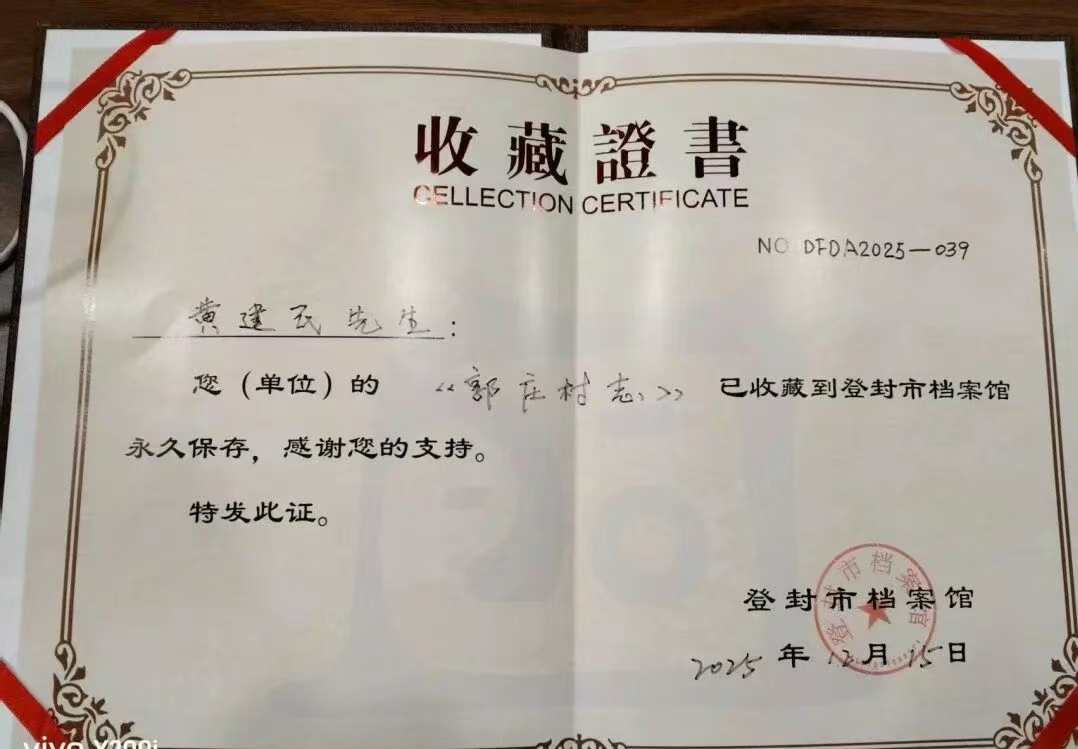 收藏證書
CELLECTION CERTIFICATE
NO DFDA2025—039
黄建民先生：
您（单位）的 《郭庄村志》 已收藏到登封市档案馆
永久保存，感谢您的支持。
特发此证。
登封市档案馆
登封市档案馆
2025年12月15日
vivo X200i